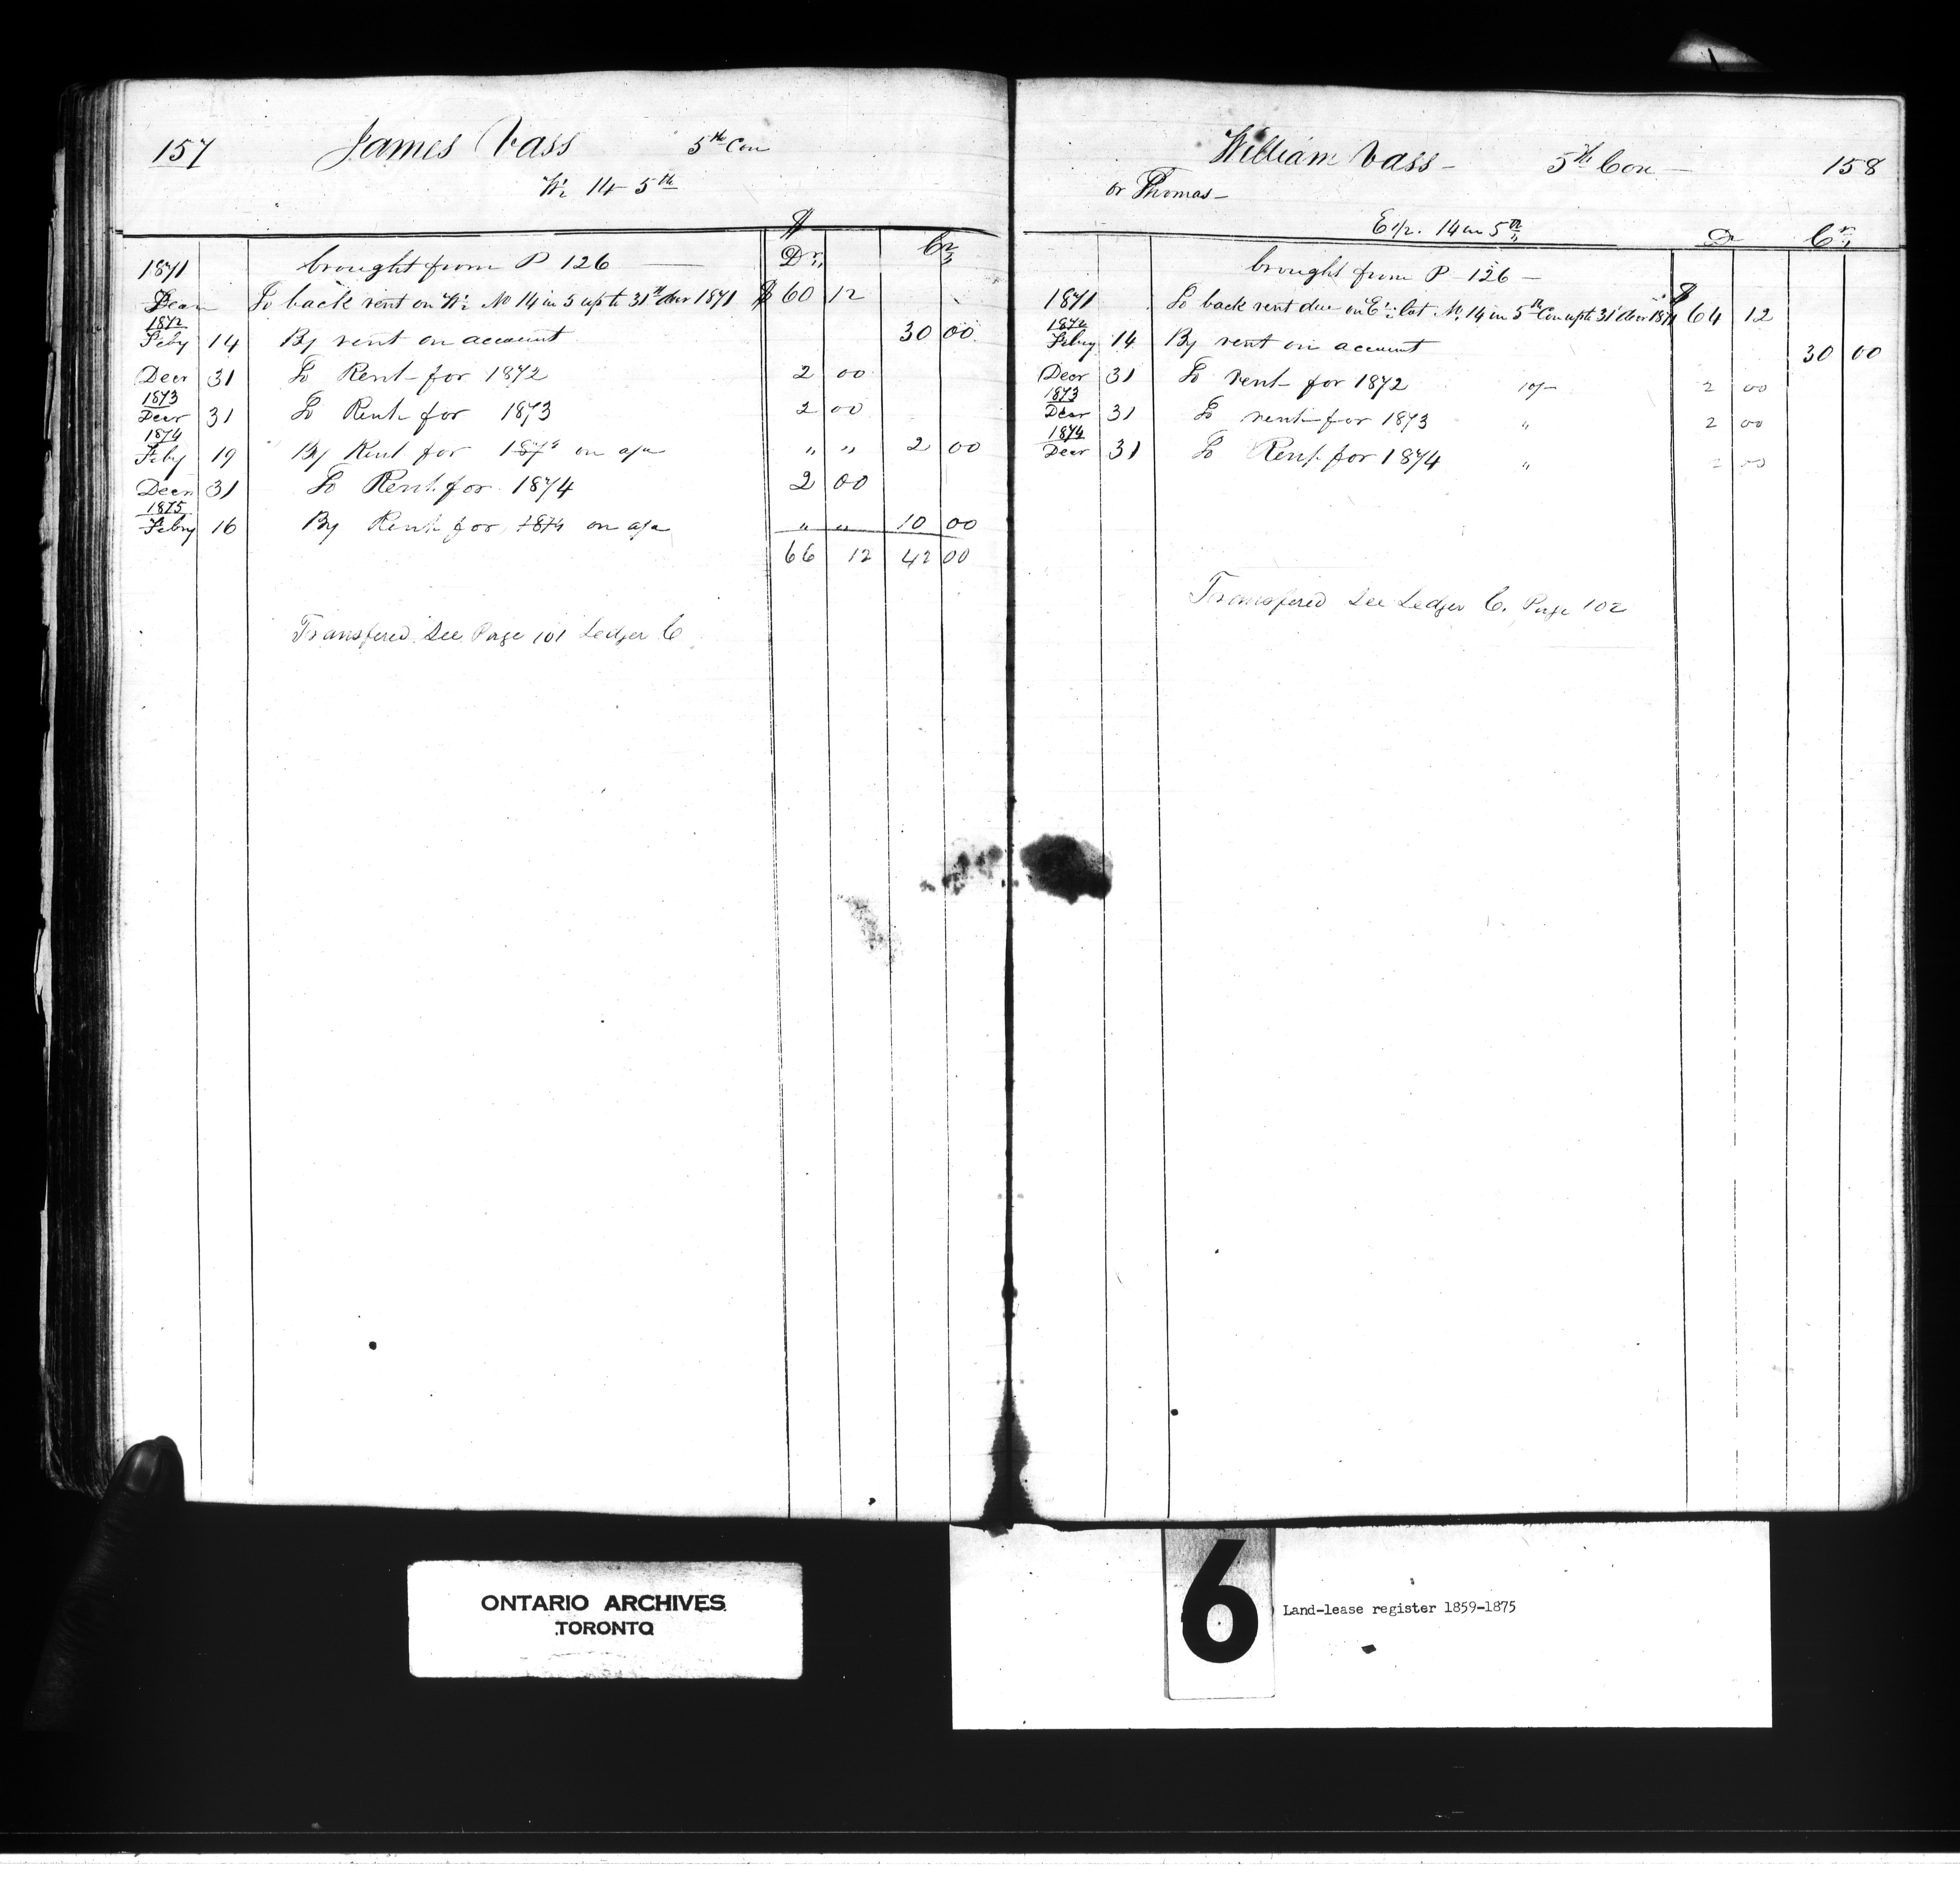 157 James Vass 5th Con
W½ 14 5th
$
1871 brought from P 126 Dr Cr
Decr To back rent on W½ No 14 in 5 up to 31st decr 1871 $ 60 12
1872
Feby 14 By rent on account 30 00
Decr 31 To Rent for 1872 2 00
1873
Decr 31 To Rent for 1873 2 00
1874
Feby 19 By Rent for 1873 on a/c " " 2 00
Decr 31 To Rent for 1874 2 00
1875
Feby 16 By Rent for 1874 on a/c " " 10 00
66 12 42 00
Transfered See Page 101 Ledger C
William Vass 5th Con 158
or Thomas
E 1/2. 14 in 5th
Dr Cr
brought from P 126
$
1871 To back rent due on E½ lot No 14 in 5th Con up to 31 decr 1871 64 12
1872
Feby 14 By rent on account 30 00
Decr 31 To rent for 1872 10/- 2 00
1873
Decr 31 To rent for 1873 " 2 00
1874
Decr 31 To Rent for 1874 " 2 00
Transfered See Ledger C. Page 102
ONTARIO ARCHIVES
TORONTO
6
Land-lease register 1859-1875